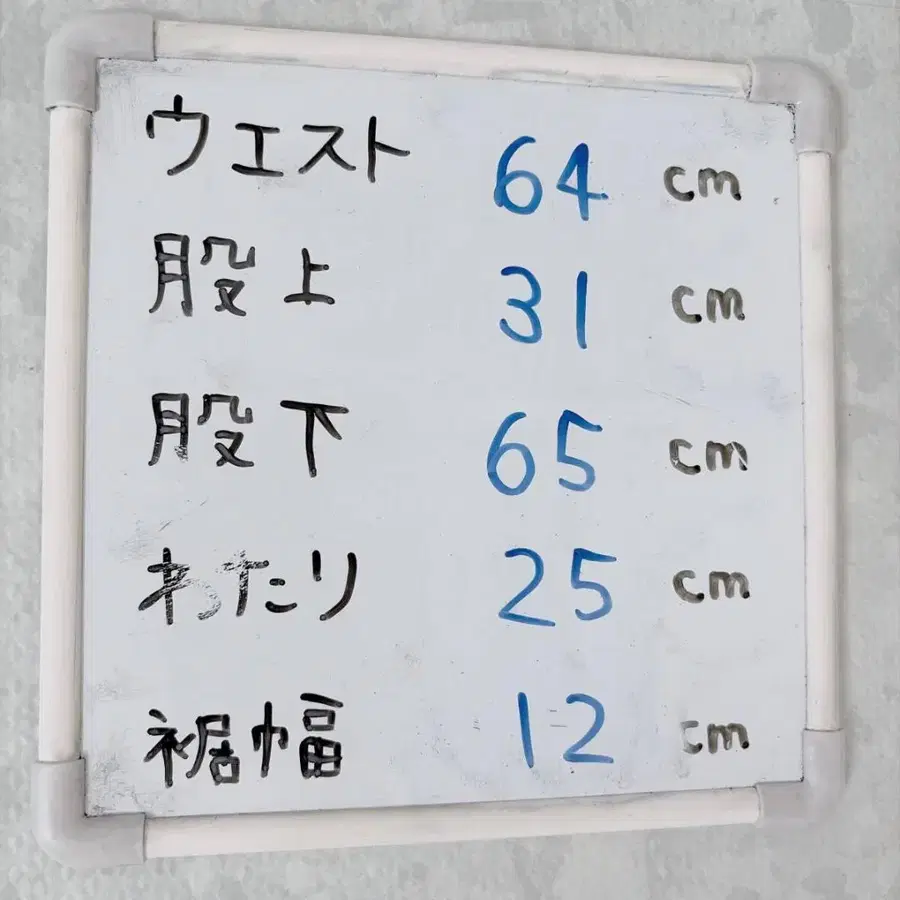 ウエスト 64 cm
股上 31 cm
股下 65 cm
わたり 25 cm
裾幅 12 cm